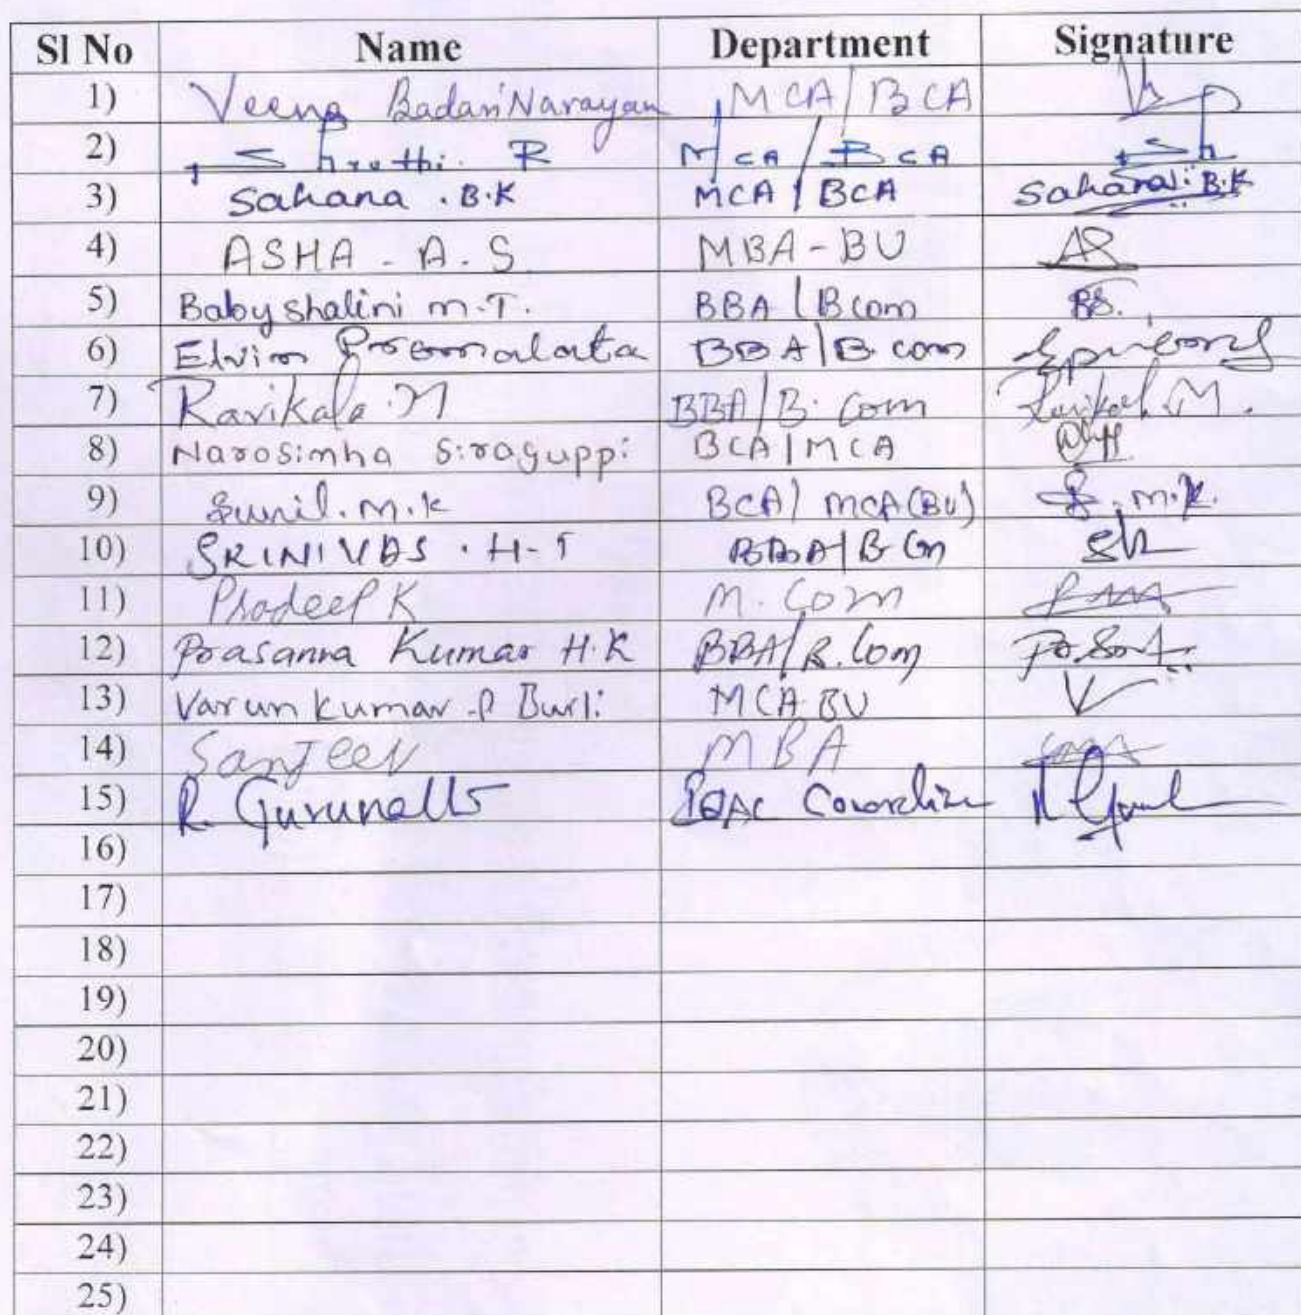 Sl No Name Department Signature
1) Veena BadariNarayan MCA/BCA
2) Shruthi. R MCA/BCA
3) Sahana . B.K MCA/BCA Sahana. B.K
4) ASHA . A. S MBA-BU AS
5) Babyshalini m.T. BBA/Bcom BS.
6) Elvin Premalata BBA/B.com
7) Ravikala M BBA/B. Com Ravikala. M.
8) Narasimha Siraguppi BCA/MCA
9) Sunil. M.K BCA/ MCA(BU) S. M.K.
10) SRINIVAS . H-T BBA/B Com
11) Pradeep K M. Com
12) Prasanna Kumar H.K BBA/B.Com
13) Varun kumar .P Burli MCA-BU
14) Sanjeev MBA
15) R. Gurunath
16)
17)
18)
19)
20)
21)
22)
23)
24)
25)